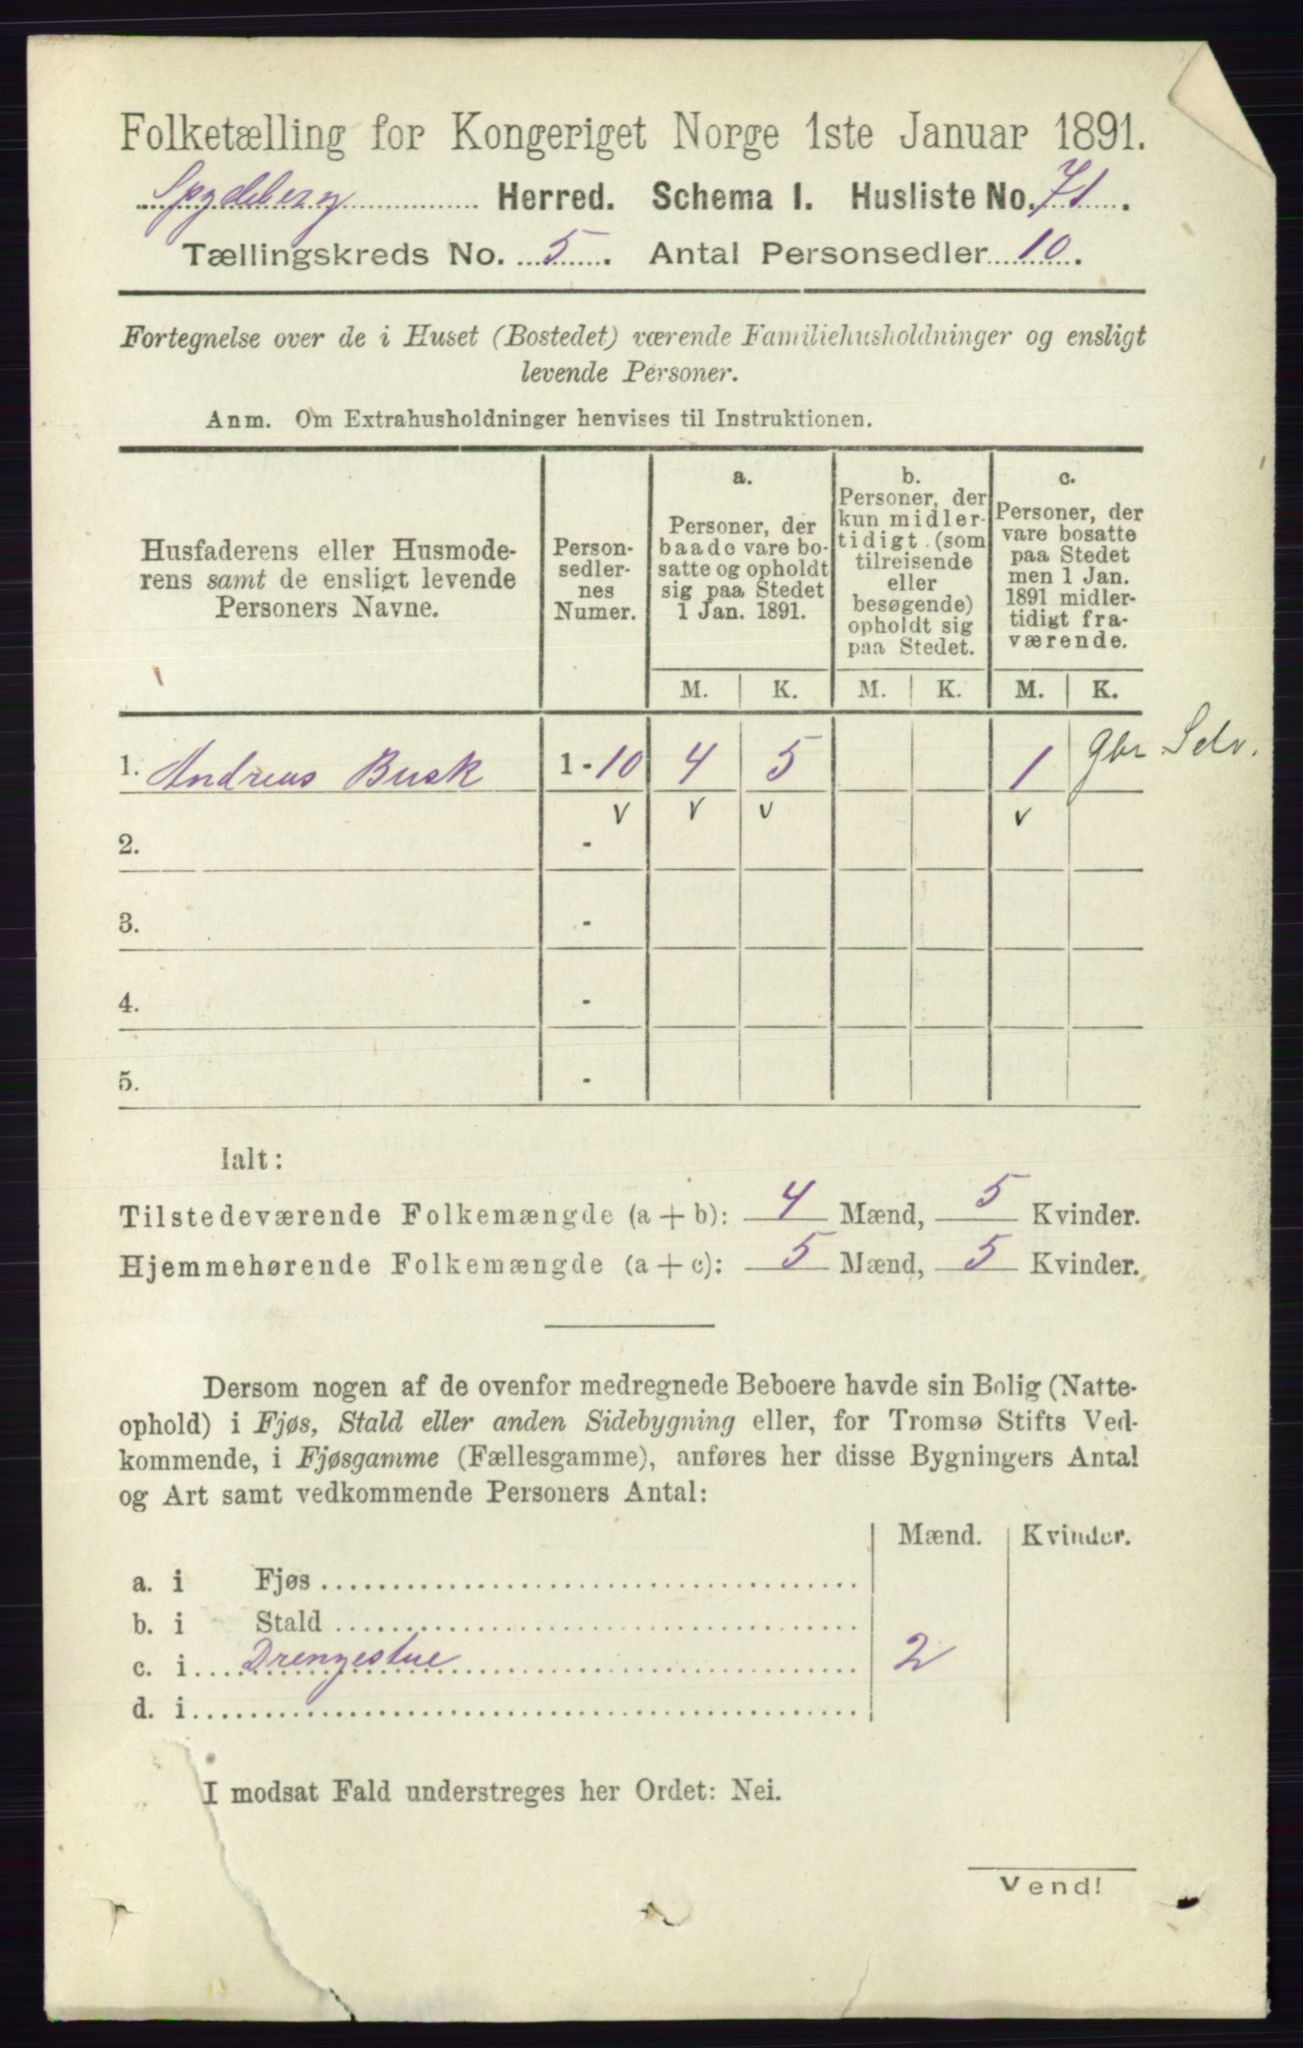 Folketælling for Kongeriget Norge 1ste Januar 1891.
Spydeberg Herred. Schema I. Husliste No. 71.
Tællingskreds No. 5. Antal Personsedler 10.
Fortegnelse over de i Huset (Bostedet) værende Familiehusholdninger og ensligt
levende Personer.
Anm. Om Extrahusholdninger henvises til Instruktionen.
Husfaderens eller Husmode-
rens samt de ensligt levende
Personers Navne.
Person-
sedler-
nes
Numer.
a.
Personer, der
baade vare bo-
satte og opholdt
sig paa Stedet
1 Jan. 1891.
b.
Personer, der
kun midler-
tidigt (som
tilreisende
eller
besøgende)
opholdt sig
paa Stedet.
c.
Personer, der
vare bosatte
paa Stedet
men 1 Jan.
1891 midler-
tidigt fra-
værende.
M. K. M. K. M. K.
1. Andreas Busk 1 - 10 4 5 1 gbr Selv.
v v v v
2. -
3. -
4. -
5. -
Ialt:
Tilstedeværende Folkemængde (a + b): 4 Mænd, 5 Kvinder.
Hjemmehørende Folkemængde (a + c): 5 Mænd, 5 Kvinder.
Dersom nogen af de ovenfor medregnede Beboere havde sin Bolig (Natte-
ophold) i Fjøs, Stald eller anden Sidebygning eller, for Tromsø Stifts Ved-
kommende, i Fjøsgamme (Fællesgamme), anføres her disse Bygningers Antal
og Art samt vedkommende Personers Antal:
Mænd. Kvinder.
a. i Fjøs
b. i Stald
c. i Drengestue 2
d. i
I modsat Fald understreges her Ordet: Nei.
Vend!